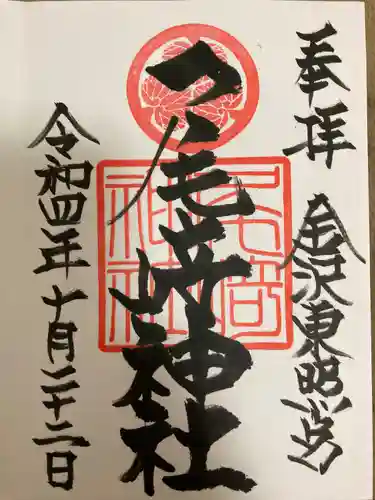 奉拝 金沢東照宮
尾崎神社
尾崎神社
令和四年十月二十二日